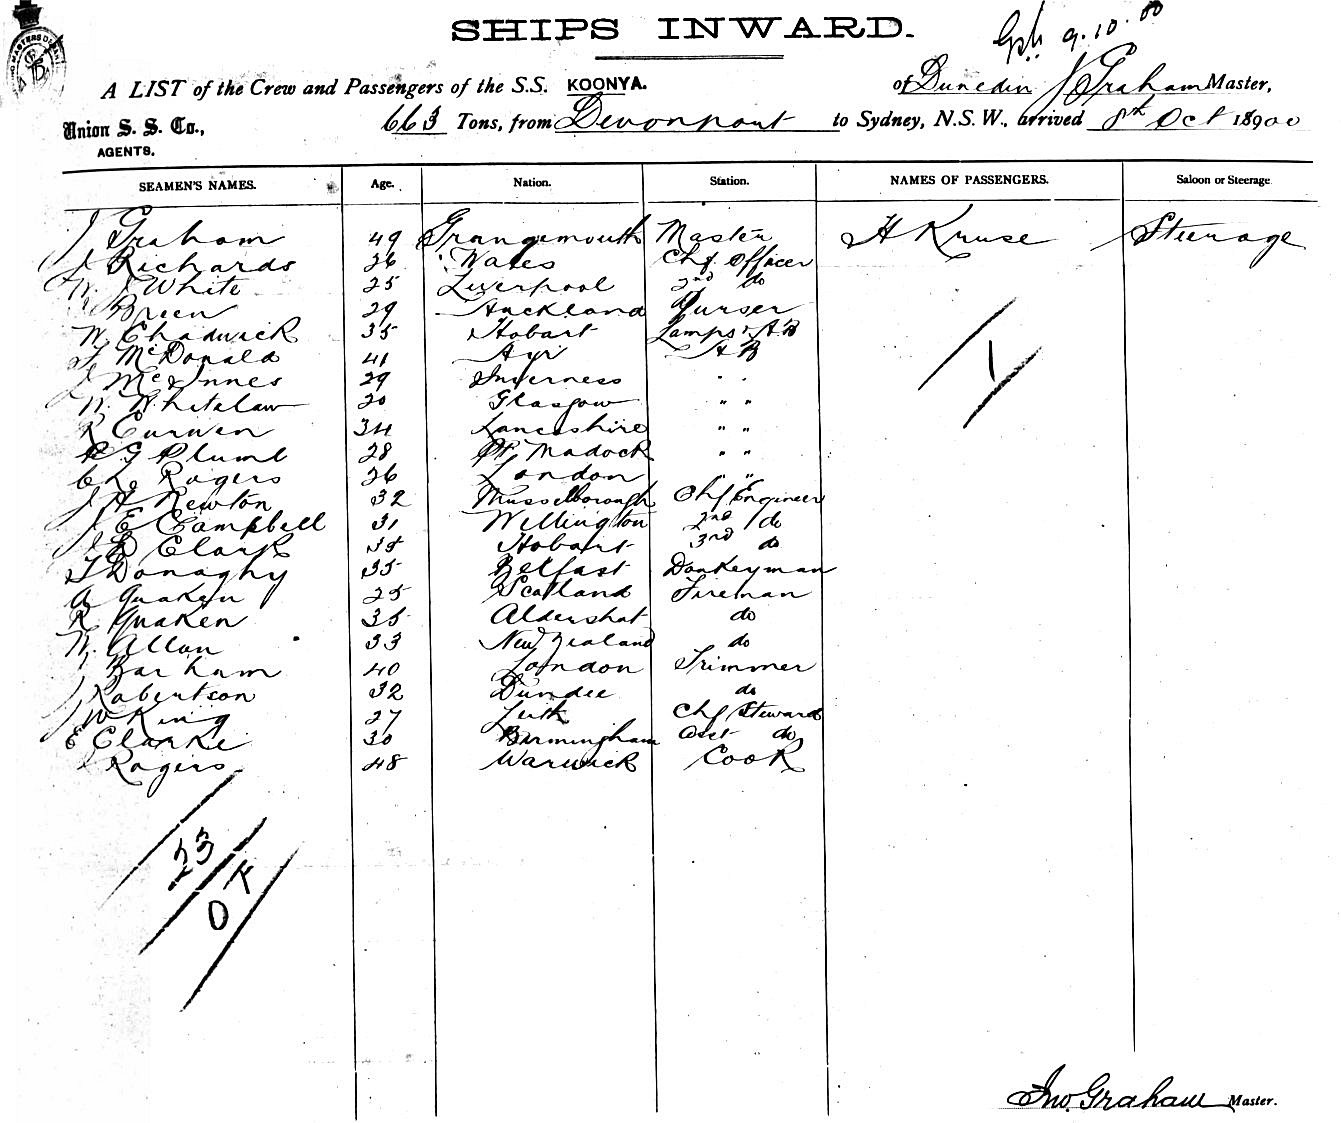 SHIPS INWARD.
9.10.00
A LIST of the Crew and Passengers of the S.S. KOONYA. of Dunedin J Graham Master,
Union S. S. Co., 663 Tons, from Devonport to Sydney, N.S.W., arrived 8th Oct 18900
AGENTS.
SEAMEN'S NAMES. Age. Nation. Station. NAMES OF PASSENGERS. Saloon or Steerage
J Graham 49 Grangemouth Master H Kruse Steerage
J Richards 26 Wales Chf Officer
W J White 25 Liverpool 2nd do
Breen 29 Auckland Purser
W Chadwick 35 Hobart Lamps & AB
McDonald 41 Ayr AB
J McInnes 29 Inverness " "
W. Whitelaw 20 Glasgow " "
R Curwen 34 Lancashire " "
R G Plumb 28 Pt Madock " "
C L Rogers 26 London " "
J H Newton 32 Musselborough Chf Engineer
J E Campbell 31 Wellington 2nd do
J E Clark 35 Hobart 3rd do
T Donaghy 35 Belfast Donkeyman
A Quaken 25 Scotland Fireman
R Quaken 35 Aldershot do
W. Allan 33 New Zealand do
J Barham 40 London Trimmer
J Robertson 32 Dundee do
J W King 27 Leith Chf Steward
E Clarke 30 Birmingham Asst do
Rogers 48 Warwick Cook
1
23
Jno. Graham Master.